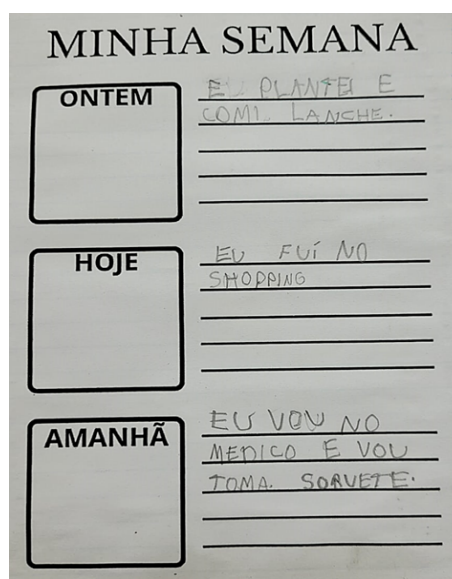 MINHA SEMANA
ONTEM
EU PLANTEI E
COMI LANCHE.
HOJE
EU FUÍ NO
SHOPPING
AMANHÃ
EU VOU NO
MEDICO E VOU
TOMA. SORVETE.